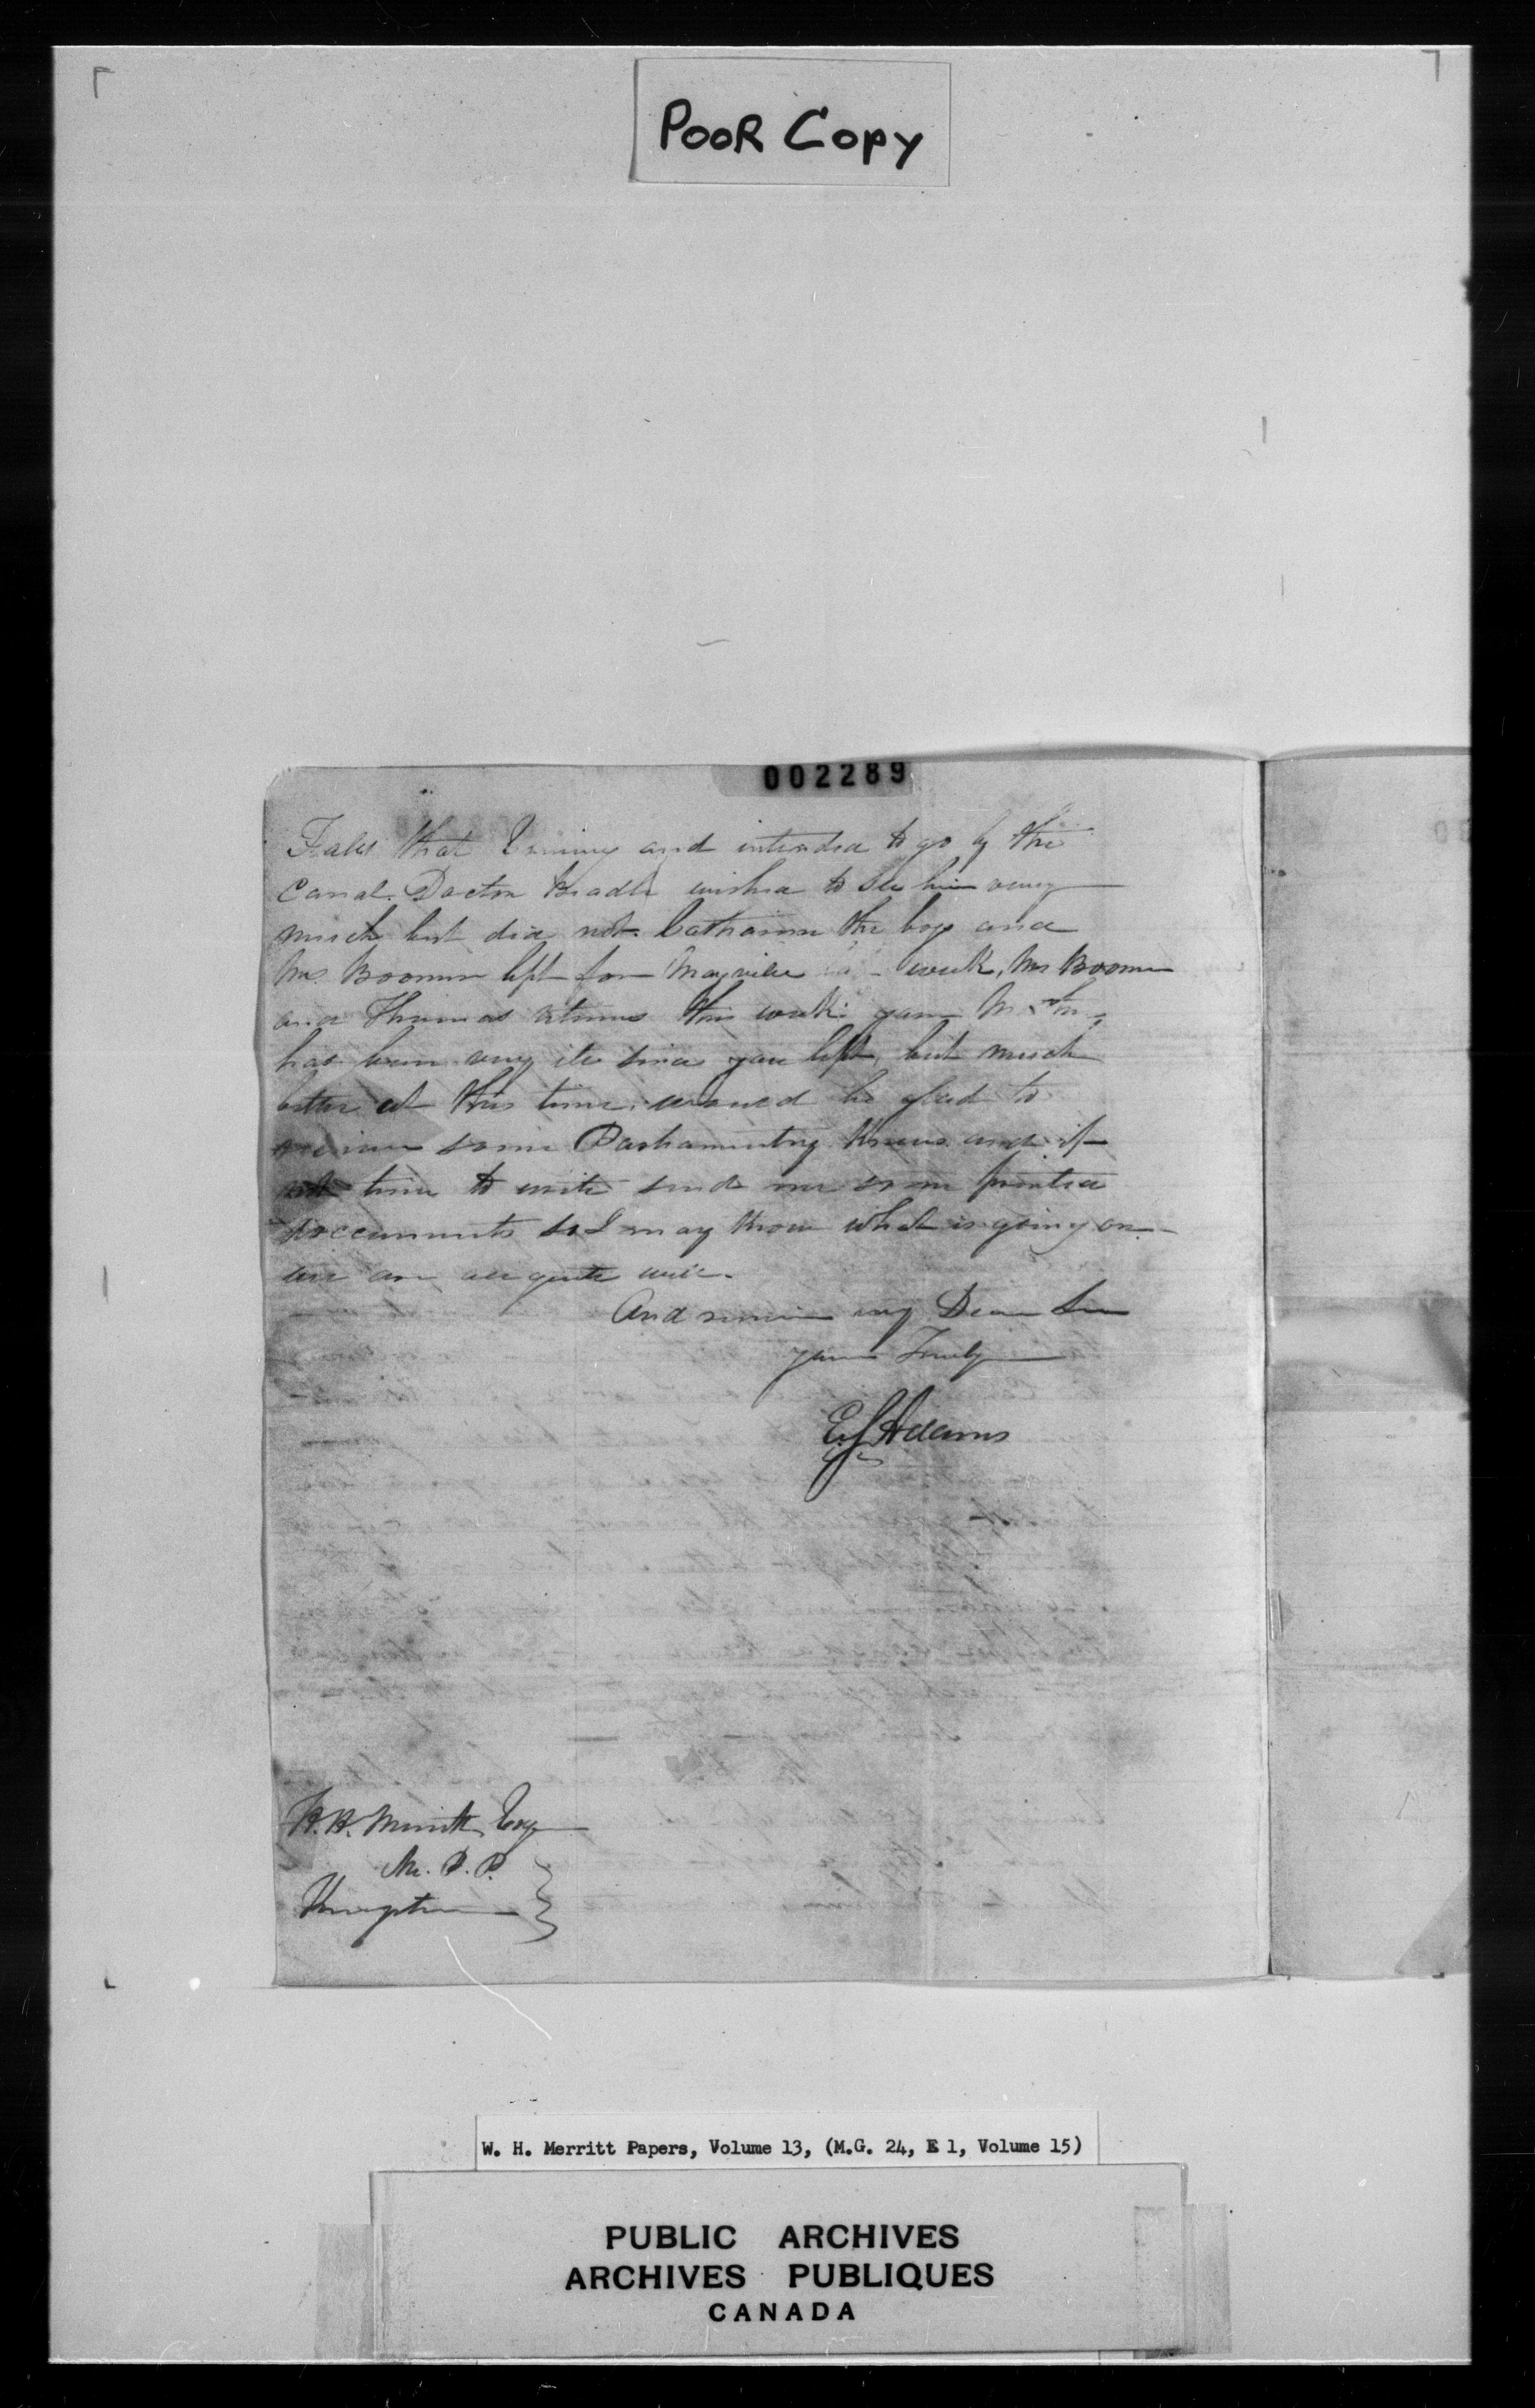 POOR COPY
002289
Falls that Evening and intended to go by the
Canal. Doctor Beadle wished to see him very
much but did not. Catharine the boys and
Mrs Boomer left for Mayville week, Mr Boomer
and Thomas returns this week. your
has been very ill since you left, but much
better at this time. would be glad to
receive some Parliamentry Knews and if
not time to write send me some printed
doccuments so I may know what is going on
we are all quite well.
And remain my Dear Sir
yours Truly
E. S. Adams
W. H. Merritt, Esqr
M. P. P.
Kingston
W. H. Merritt Papers, Volume 13, (M.G. 24, E 1, Volume 15)
PUBLIC ARCHIVES
ARCHIVES PUBLIQUES
CANADA